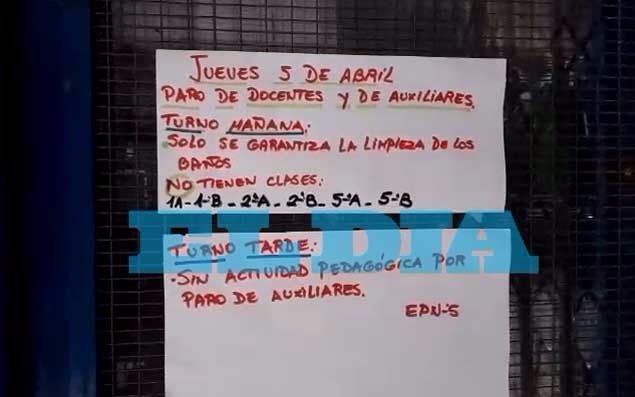 JUEVES 5 DE ABRIL
PARO DE DOCENTES Y DE AUXILIARES.
TURNO MAÑANA:
SOLO SE GARANTIZA LA LIMPIEZA DE LOS
BAÑOS
NO TIENEN CLASES:
1A-1ºB-2ºA-2ºB-5ºA-5ºB
EL DIA
TURNO TARDE:
·SIN ACTIVIDAD PEDAGÓGICA POR
PARO DE AUXILIARES.
EPN-5